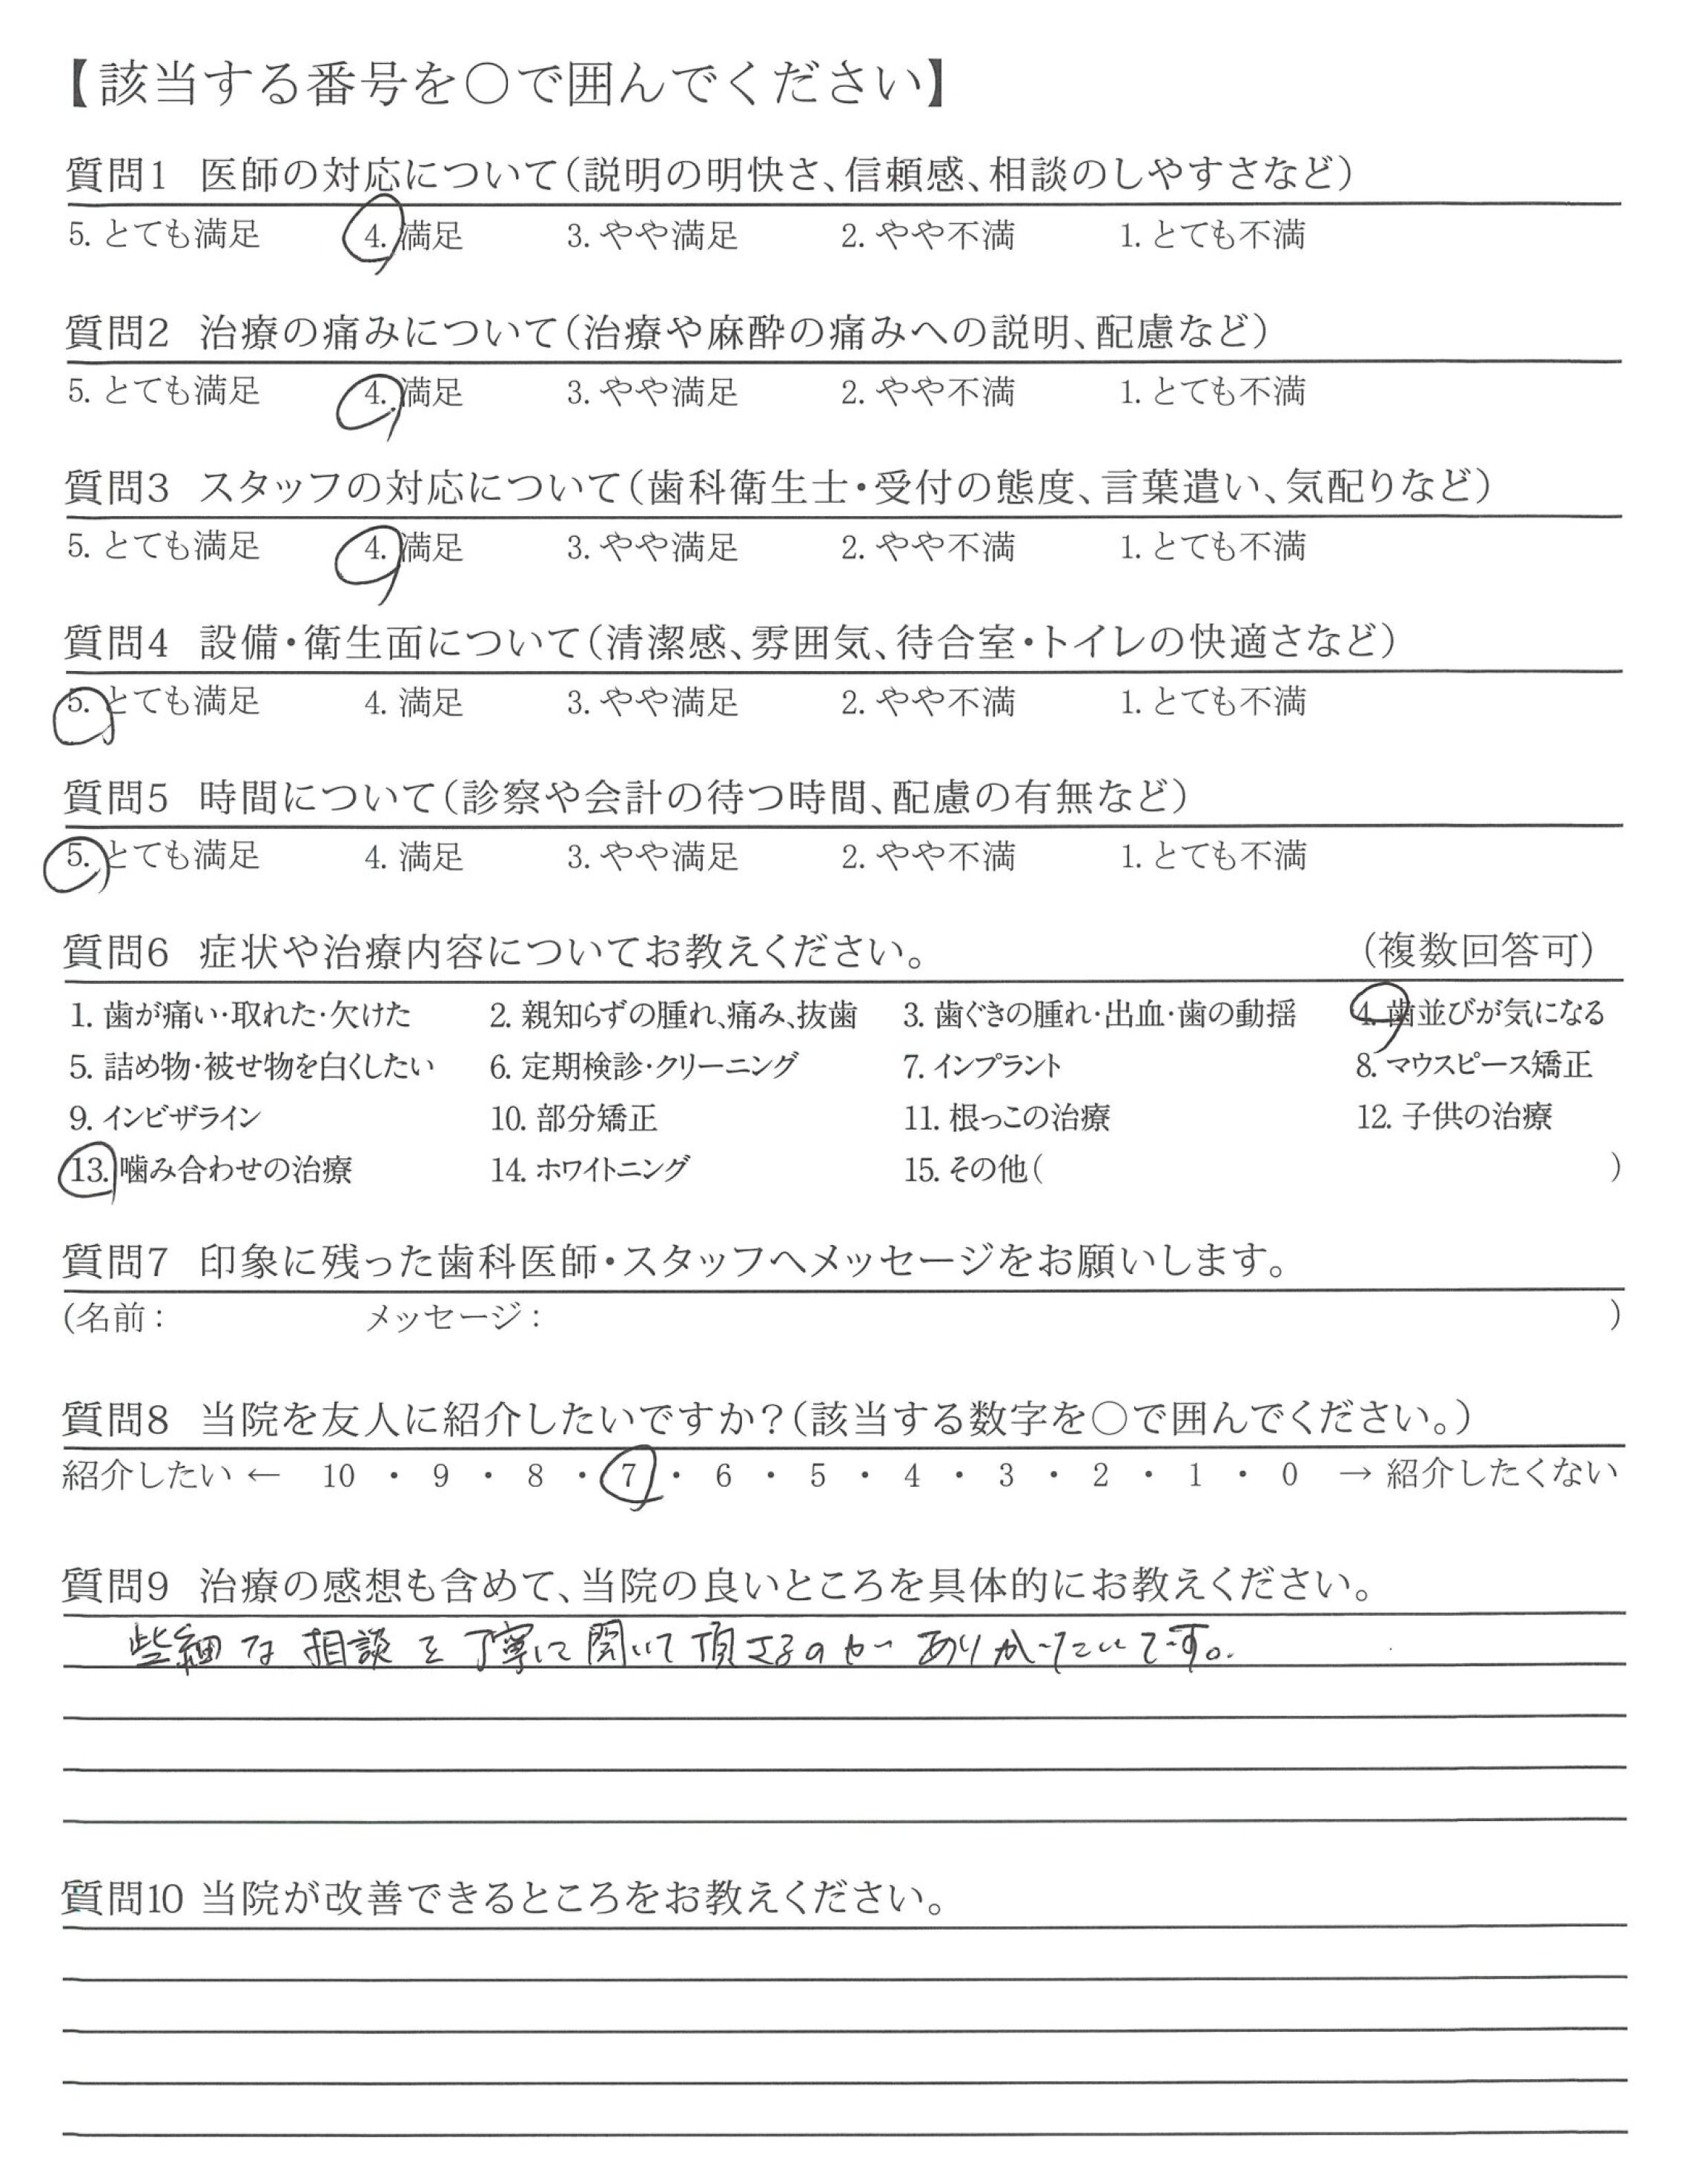 【該当する番号を〇で囲んでください】
質問1 医師の対応について(説明の明快さ、信頼感、相談のしやすさなど)
5. とても満足 4. 満足 3. やや満足 2. やや不満 1. とても不満
質問2 治療の痛みについて(治療や麻酔の痛みへの説明、配慮など)
5. とても満足 4. 満足 3. やや満足 2. やや不満 1. とても不満
質問3 スタッフの対応について(歯科衛生士・受付の態度、言葉遣い、気配りなど)
5. とても満足 4. 満足 3. やや満足 2. やや不満 1. とても不満
質問4 設備・衛生面について(清潔感、雰囲気、待合室・トイレの快適さなど)
5. とても満足 4. 満足 3. やや満足 2. やや不満 1. とても不満
質問5 時間について(診察や会計の待つ時間、配慮の有無など)
5. とても満足 4. 満足 3. やや満足 2. やや不満 1. とても不満
質問6 症状や治療内容についてお教えください。 (複数回答可)
1. 歯が痛い・取れた・欠けた 2. 親知らずの腫れ、痛み、抜歯 3. 歯ぐきの腫れ・出血・歯の動揺 4. 歯並びが気になる
5. 詰め物・被せ物を白くしたい 6. 定期検診・クリーニング 7. インプラント 8. マウスピース矯正
9. インビザライン 10. 部分矯正 11. 根っこの治療 12. 子供の治療
13. 噛み合わせの治療 14. ホワイトニング 15. その他( )
質問7 印象に残った歯科医師・スタッフへメッセージをお願いします。
(名前: メッセージ: )
質問8 当院を友人に紹介したいですか?(該当する数字を〇で囲んでください。)
紹介したい ← 10 ・ 9 ・ 8 ・ 7 ・ 6 ・ 5 ・ 4 ・ 3 ・ 2 ・ 1 ・ 0 → 紹介したくない
質問9 治療の感想も含めて、当院の良いところを具体的にお教えください。
些細な相談を丁寧に聞いて頂けるのがありがたいです。
質問10 当院が改善できるところをお教えください。